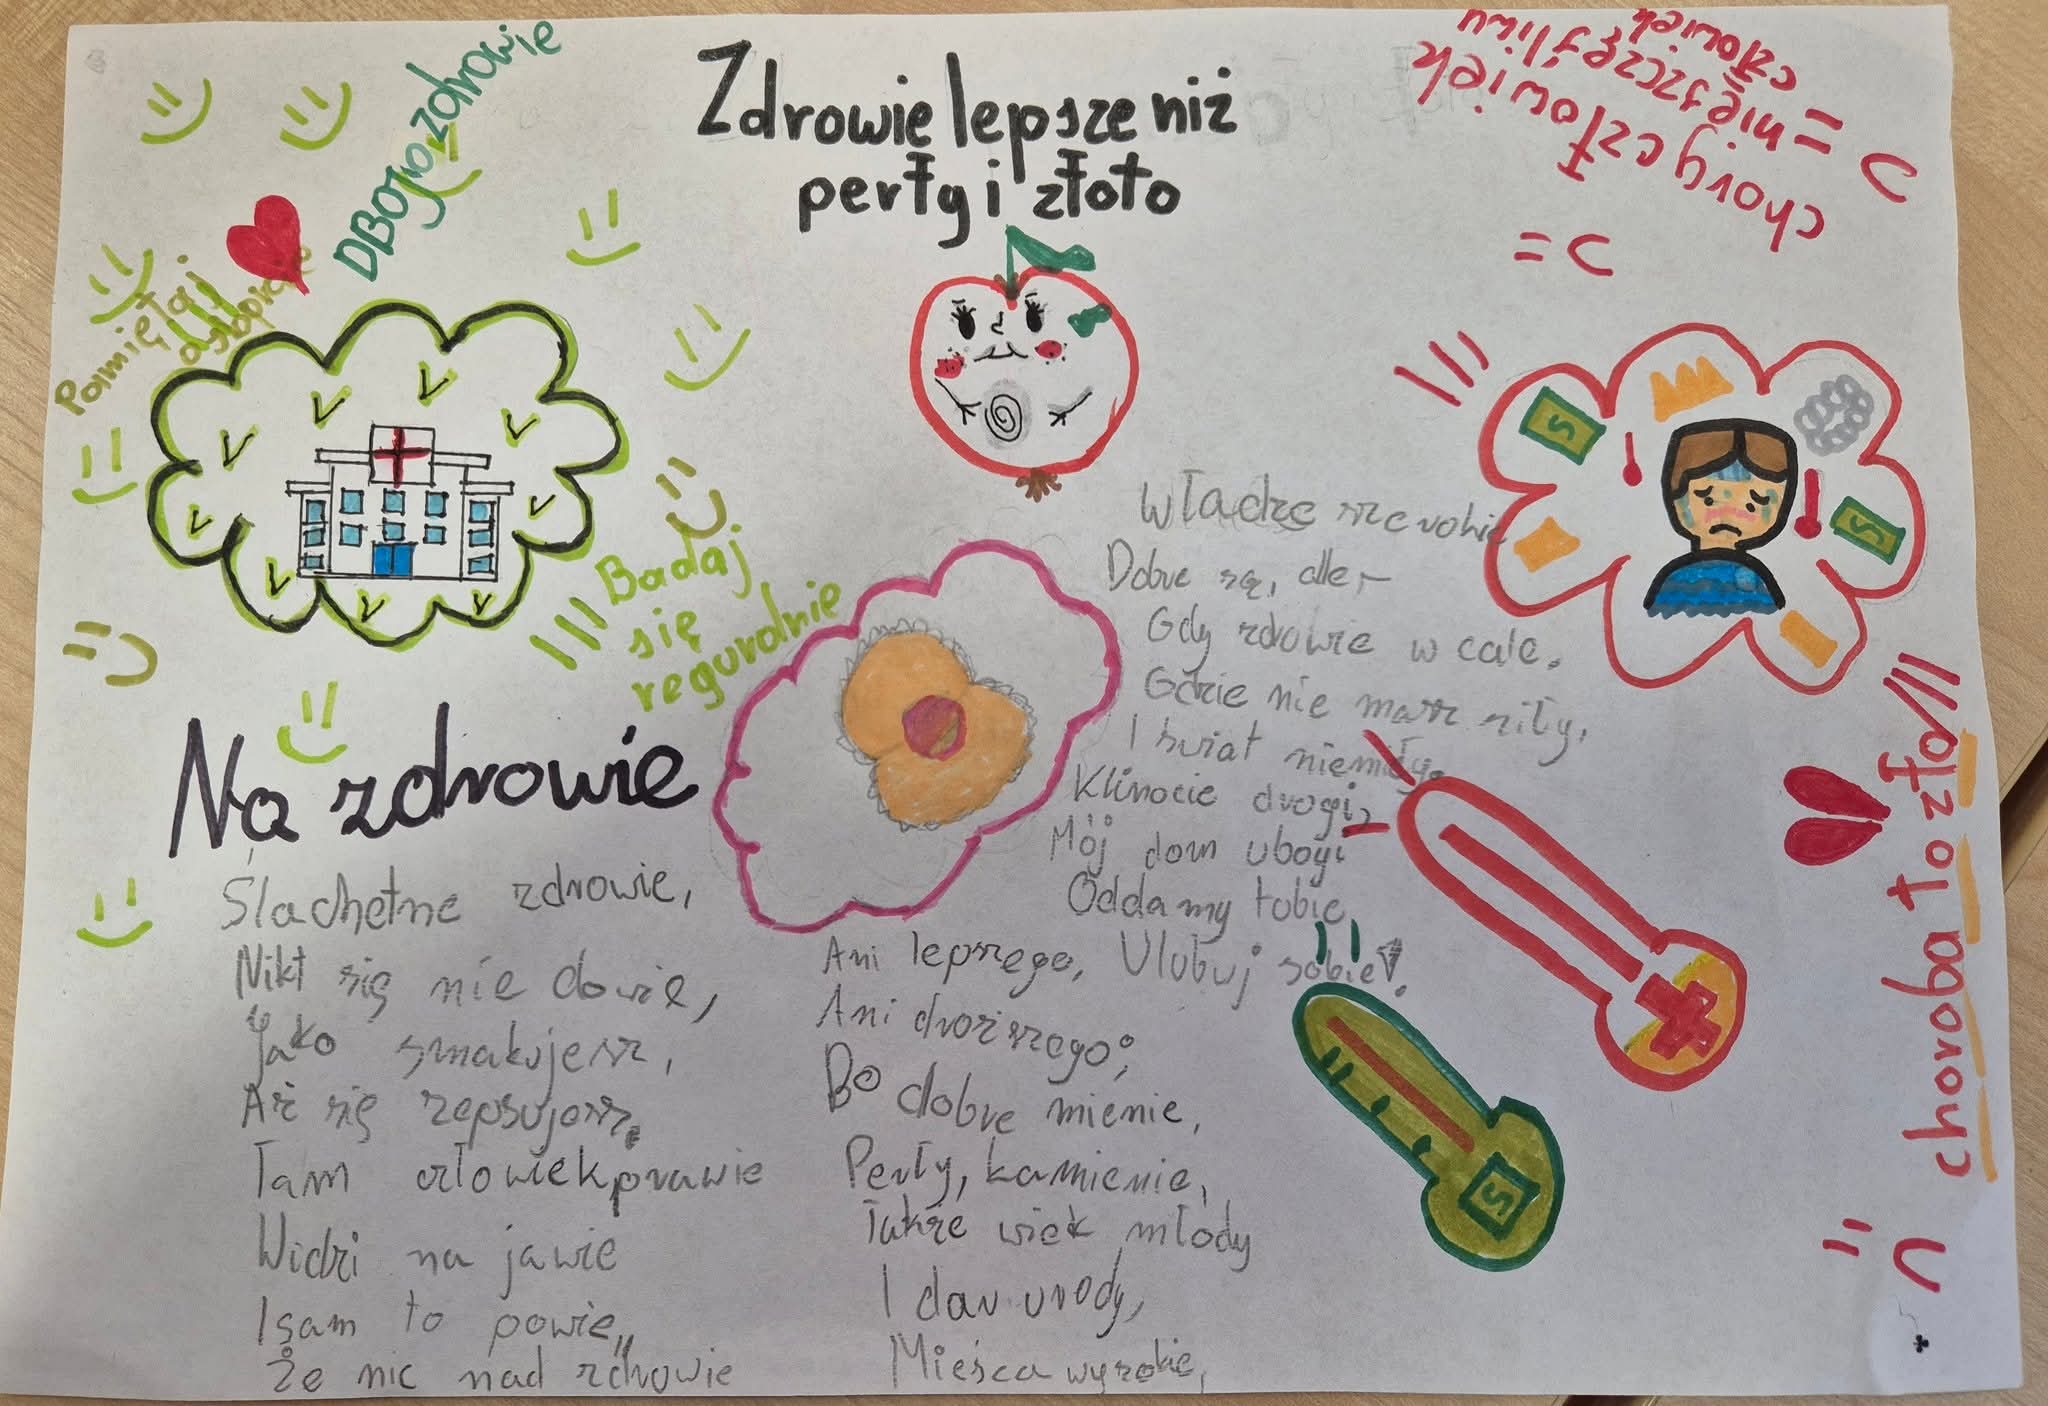 Zdrowie lepsze niż
perły i złoto
DBOJ o zdrowie
Pamiętaj
chory człowiek
= nieszczęśliwy
człowiek
Badaj
się
reguralnie
Na zdrowie
Ślachetne zdrowie,
Nikt się nie dowie,
Jako smakujesz,
Aż się zepsujesz.
Tam człowiek prawie
Widzi na jawie
I sam to powie,
Że nic nad zdrowie
Ani lepszego,
Ani droższego;
Bo dobre mienie,
Perły, kamienie,
Także wiek młody
I dar urody,
Mieśca wysokie,
Władze szerokie
Dobre są, ale,-
Gdy zdrowie w cale.
Gdzie nie masz siły,
I świat niemiły.
Klinocie drogi,
Mój dom ubogi
Oddamy tobie
Ulubuj sobie!
choroba to zło
S
S
S